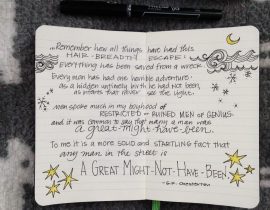 ...Remember how all things have had this
HAIR-BREADTH ESCAPE:
Everything has been saved from a wreck.
Every man has had one horrible adventure:
as a hidden untimely birth he had not been,
as infants that never saw the light.
men spoke much in my boyhood of
RESTRICTED or RUINED MEN of GENIUS
and it was common to say that many a man was
a great-might-have-been.
To me it is a more solid and startling fact that
any man in the street is
A GREAT MIGHT-NOT-HAVE-BEEN
-G.K. CHESTERTON